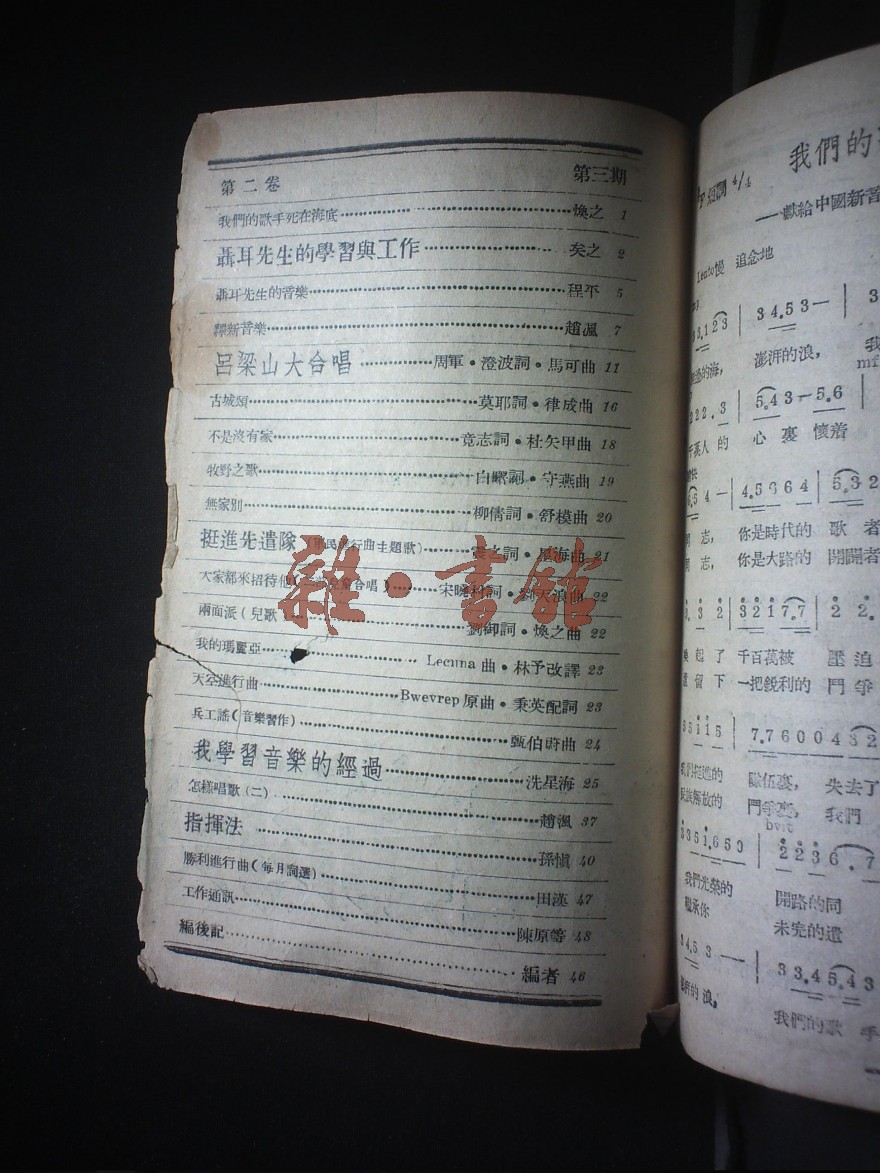 第二卷 第三期
我們的歌手死在海底 煥之 1
聶耳先生的學習與工作 矣之 2
聶耳先生的音樂 程平 5
釋新音樂 趙渢 7
呂梁山大合唱 周軍·澄波詞·馬可曲 11
古城頌 莫耶詞·律成曲 16
不是沒有家 竟志詞·杜矢甲曲 18
牧野之歌 詞·守燕曲 19
無家別 柳倩詞·舒模曲 20
挺進先遣隊(軍民進行曲主題歌) 詞·星海曲 21
大家都來招待他 合唱) 詞· 曲 22
兩面派(兒歌 劉御詞·煥之曲 22
我的瑪麗亞 Lecuna 曲·林予改譯 23
天空進行曲 Bwevrep 原曲·秉英配詞 23
兵工謠(音樂習作) 甄伯蔚曲 24
我學習音樂的經過 冼星海 25
怎樣唱歌(二) 趙渢 37
指揮法 孫愼 40
勝利進行曲(每月詞選) 田漢 47
工作通訊 陳原等 48
編後記 編者 46
雜·書館
我們的
調 4/4
——獻給中國新音
Lento慢 追念地
3.1 2 3 | 3 4.5 3 — | 3
的海, 澎湃的浪, 我
mf
2 2 2.3 | 5.4 3 — 5.6
人的 心裏 懷着
6.5 4 — | 4.5 6 6 4 | 5.3 2
志, 你是時代的 歌者
志, 你是大路的 開闢者
3 2 | 3 2 1 7.7 | 2 2.
起了 千百萬被 壓迫
留下 一把銳利的 鬥爭
5 5 1 1 5 | 7.7 6 0 0 4 3 2
隊伍裏, 失去了
解放的 鬥爭裏, 我們
3 3 5 1.6 5 0 | 2 2 3 6.7
我們光榮的 開路的同
繼承你 未完的遺
3 4.5 3 — | 3 3.4 5 4 3
的浪, 我們的歌手